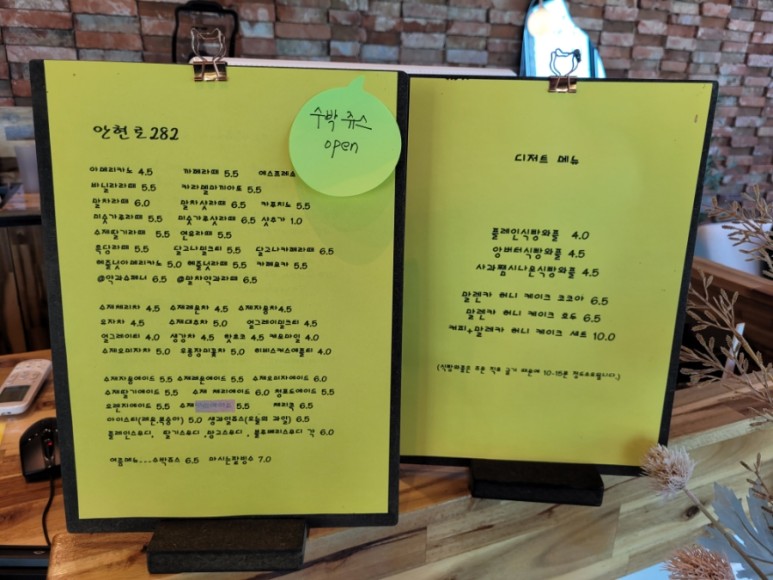 안현로282
수박 쥬스
open
아메리카노 4.5 까페라떼 5.5 에스프레소
바닐라라떼 5.5 카라멜마끼아또 5.5
말차라떼 6.0 말차샷라떼 6.5 카푸치노 5.5
미숫가루라떼 5.5 미숫가루샷라떼 6.5 샷추가 1.0
수제딸기라떼 5.5 연유라떼 5.5
흑당라떼 5.5 달고나밀크티 5.5 달고나카페라떼 6.5
헤즐넛아메리카노 5.0 헤즐넛라떼 5.5 카페모카 5.5
@약과쇼페너 6.5 @말차약과라떼 6.5
수제체리차 4.5 수제레몬차 4.5 수제자몽차4.5
유자차 4.5 수제대추차 5.0 얼그레이밀크티 4.5
얼그레이 4.0 생강차 4.5 핫초코 4.5 캐모마일 4.0
수제오미자차 5.0 우롱장미꽃차 5.0 히비스커스애플티 4.0
수제자몽에이드 5.5 수제레몬에이드 5.5 수제오미자에이드 6.0
수제딸기에이드 5.5 수제 체리에이드 6.0 청포도에이드 5.5
오렌지에이드 5.5 수제 5.5 체리콕 6.5
아이스티(레몬,복숭아) 5.0 생과일쥬스(오늘의 과일) 6.5
플레인스무디, 딸기스무디 ,망고스무디 , 블루베리스무디 각 6.0
여름메뉴---수박쥬스 6.5 마시는팥빙수 7.0
디저트 메뉴
플레인식빵와플 4.0
앙버터식빵와플 4.5
사과쨈시나몬식빵와플 4.5
말렌카 허니 케이크 코코아 6.5
말렌카 허니 케이크 호두 6.5
커피+말렌카 허니 케이크 세트 10.0